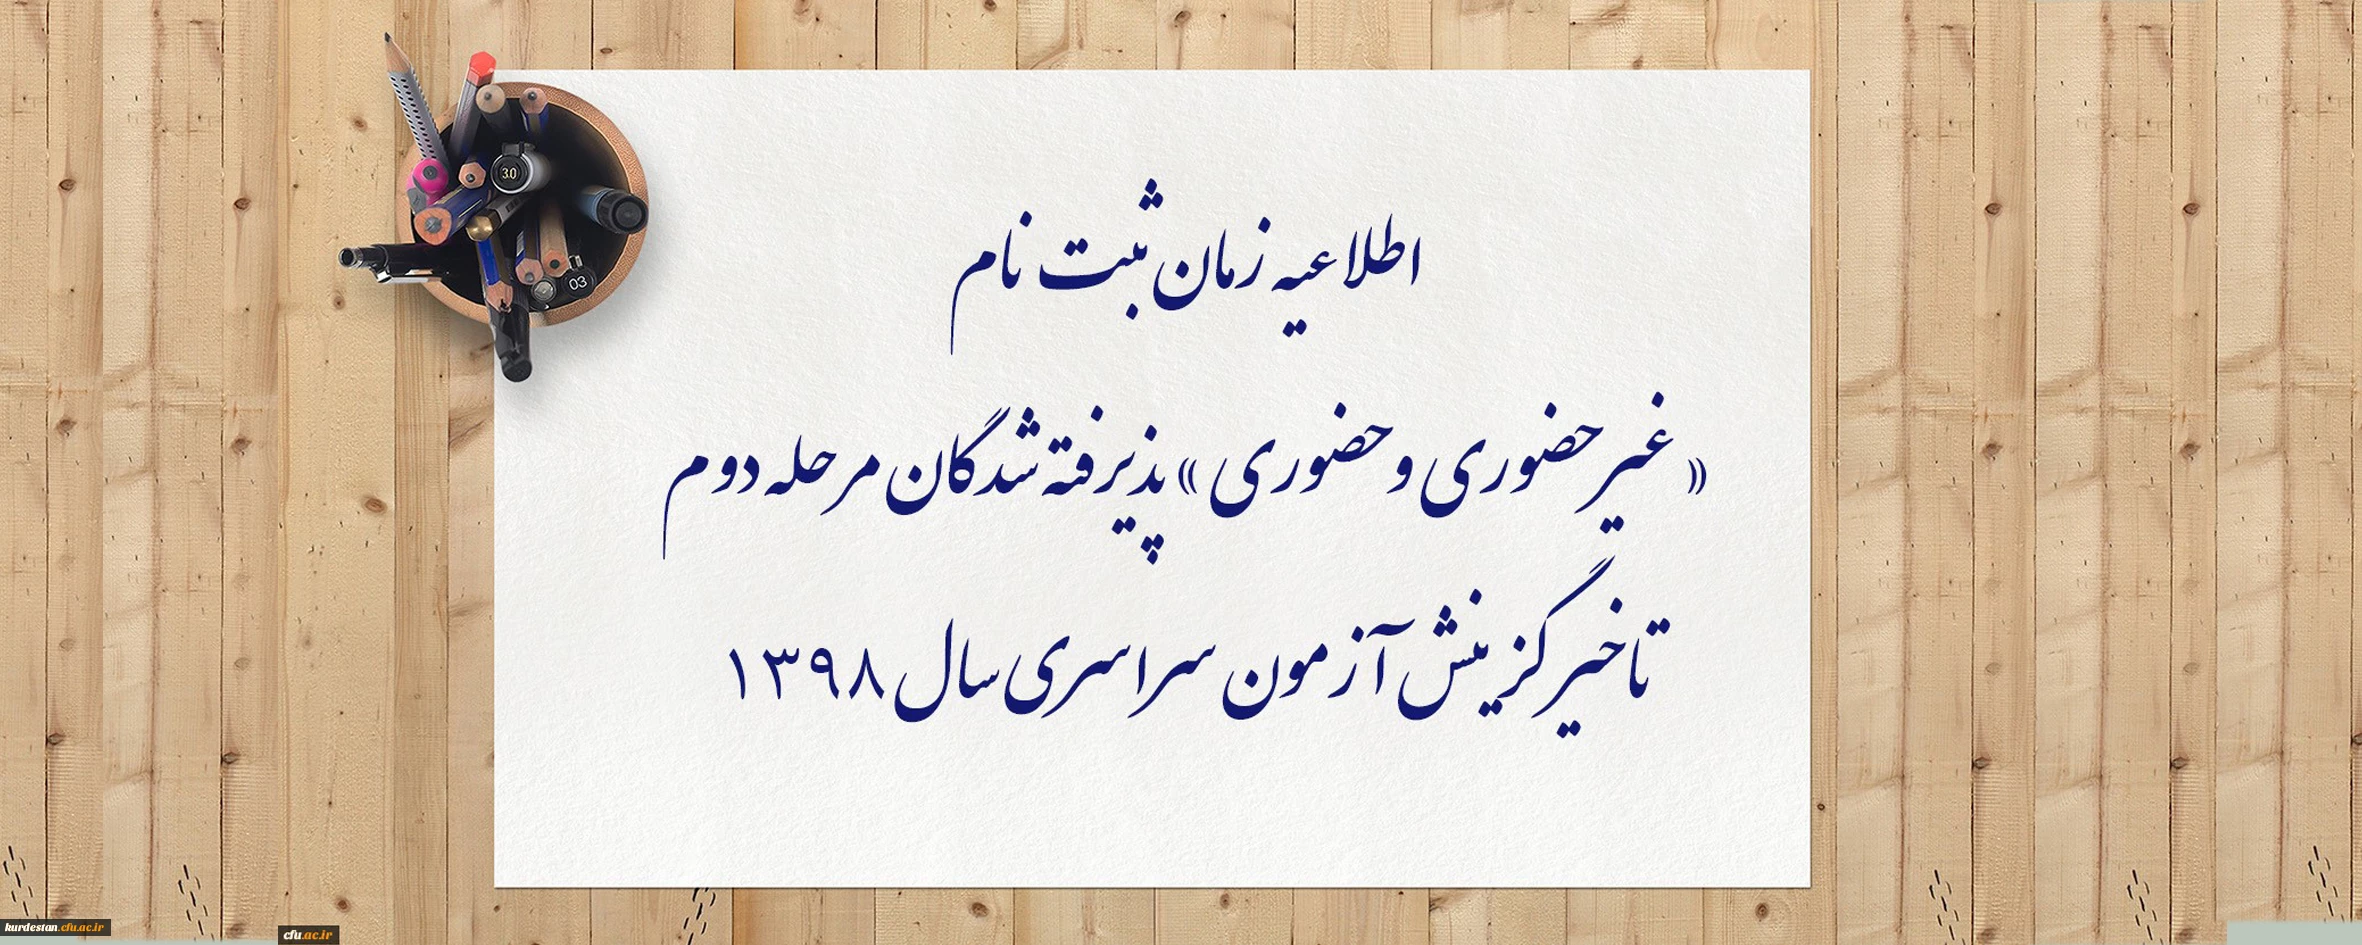 اطلاعیه زمان ثبت نام
« غیر حضوری و حضوری » پذیرفته شدگان مرحله دوم
تاخیر گزینش آزمون سراسری سال ۱۳۹۸
3.0
03
kurdestan.cfu.ac.ir
cfu.ac.ir